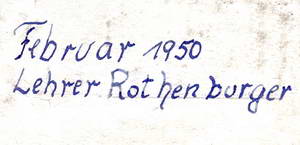 Februar 1950
Lehrer Rothenburger